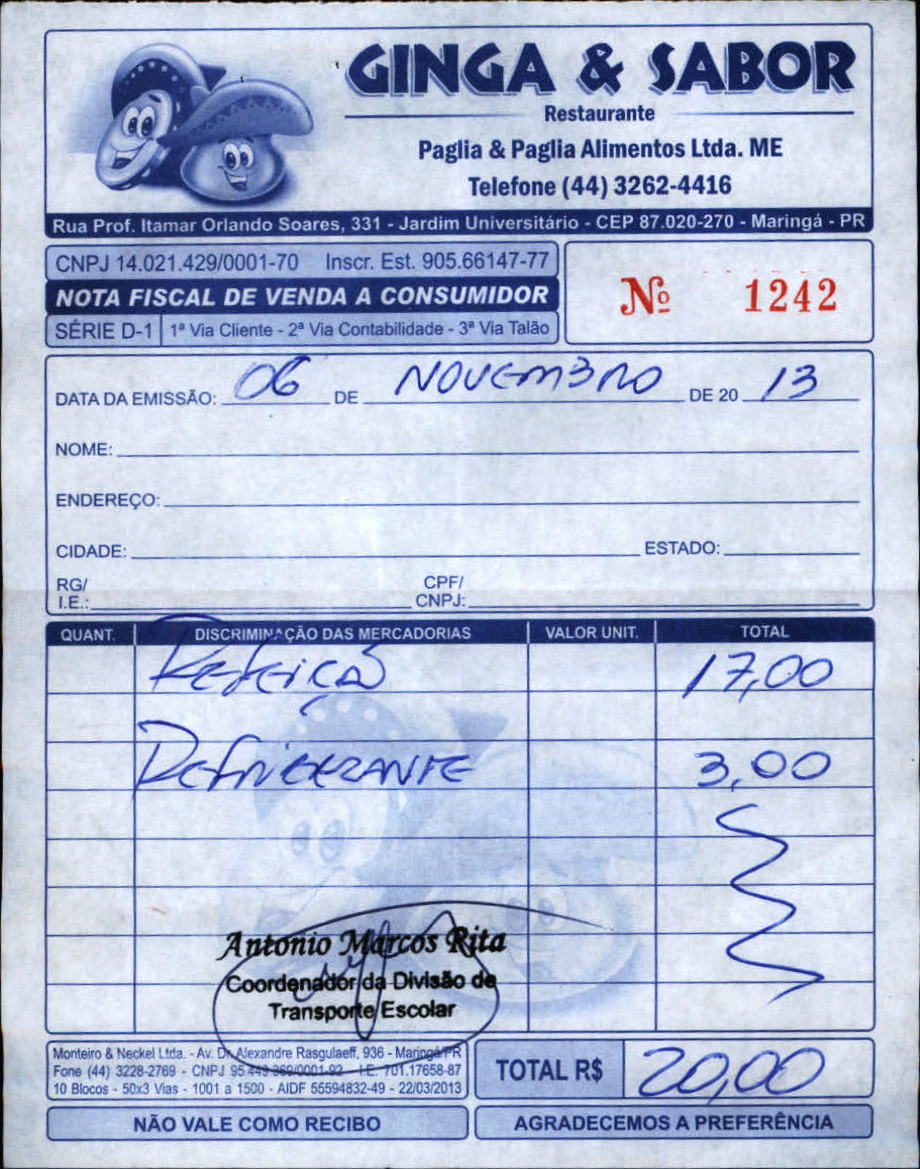 GINGA & SABOR
Restaurante
Paglia & Paglia Alimentos Ltda. ME
Telefone (44) 3262-4416
Rua Prof. Itamar Orlando Soares, 331 - Jardim Universitário - CEP 87.020-270 - Maringá - PR
CNPJ 14.021.429/0001-70 Inscr. Est. 905.66147-77
NOTA FISCAL DE VENDA A CONSUMIDOR
SÉRIE D-1 1ª Via Cliente - 2ª Via Contabilidade - 3ª Via Talão
Nº 1242
DATA DA EMISSÃO: 06 DE NOVEMBRO DE 20 13
NOME:
ENDEREÇO:
CIDADE: ESTADO:
RG/ CPF/
I.E.: CNPJ:
QUANT. DISCRIMINAÇÃO DAS MERCADORIAS VALOR UNIT. TOTAL
Refeição 17,00
Refrigerante 3,00
Antonio Marcos Rita
Coordenador da Divisão de
Transporte Escolar
Monteiro & Neckel Ltda. - Av. Dr. Alexandre Rasgulaeff, 936 - Maringá-PR
Fone (44) 3228-2769 - CNPJ 95.449.369/0001-92 - I.E. 701.17658-87
10 Blocos - 50x3 Vias - 1001 a 1500 - AIDF 55594832-49 - 22/03/2013
TOTAL R$ 20,00
NÃO VALE COMO RECIBO
AGRADECEMOS A PREFERÊNCIA